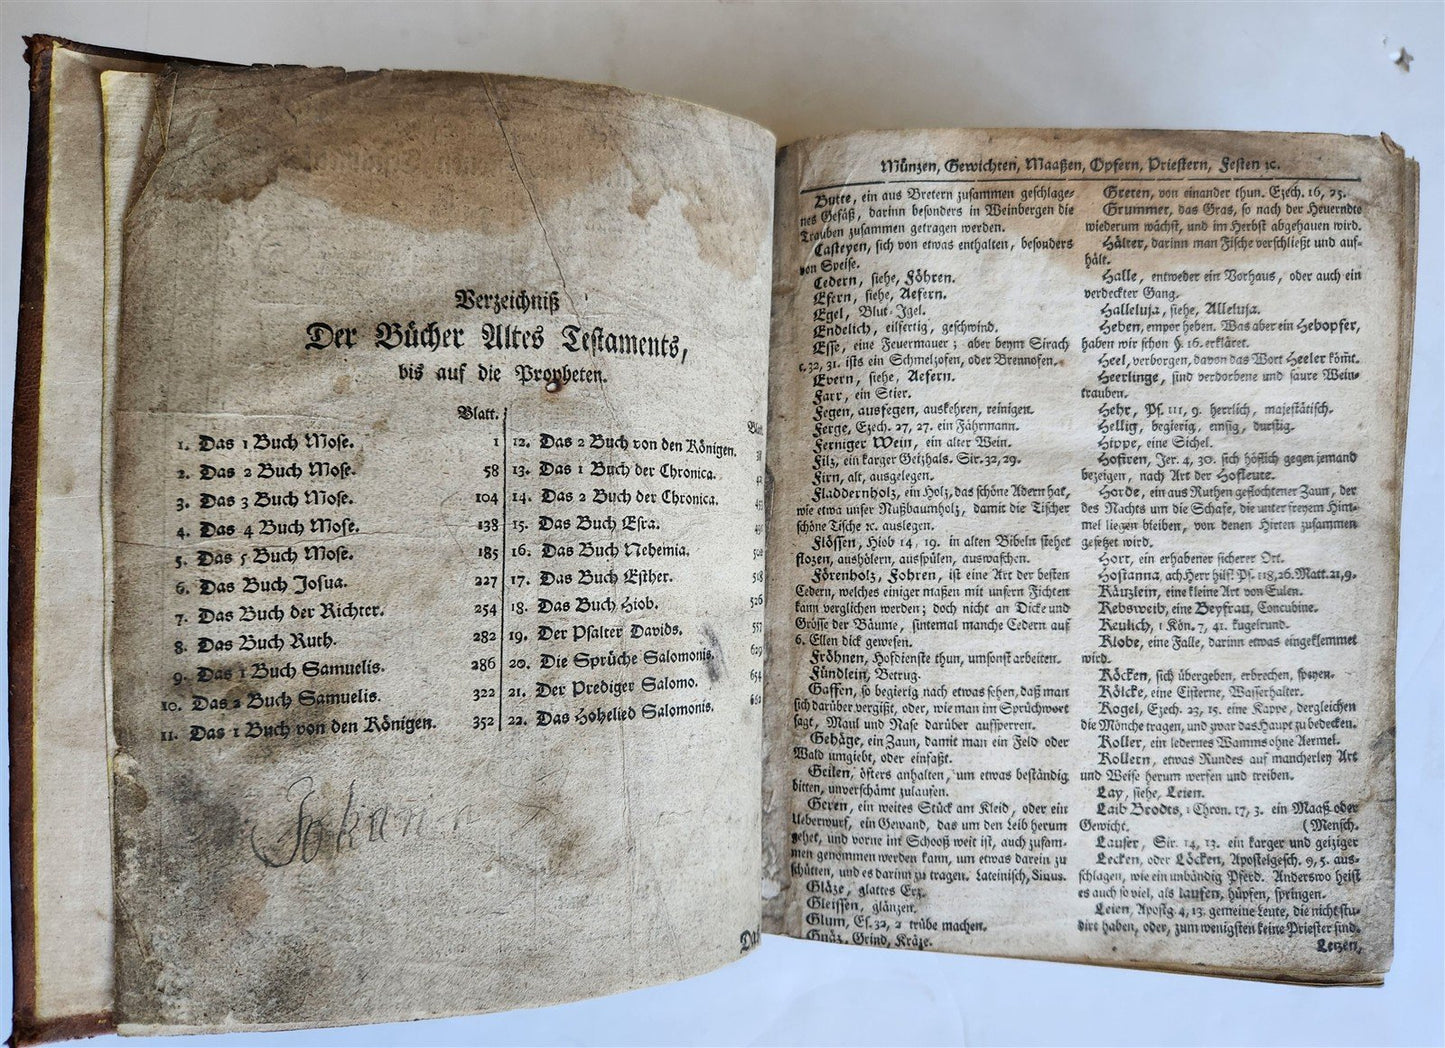 Verzeichniß
Der Bücher Altes Testaments,
bis auf die Propheten.
Blatt.
1. Das 1 Buch Mose. 1
2. Das 2 Buch Mose. 58
3. Das 3 Buch Mose. 104
4. Das 4 Buch Mose. 138
5. Das 5 Buch Mose. 185
6. Das Buch Josua. 227
7. Das Buch der Richter. 254
8. Das Buch Ruth. 282
9. Das 1 Buch Samuelis. 286
10. Das 2 Buch Samuelis. 322
11. Das 1 Buch von den Königen. 352
Blatt.
12. Das 2 Buch von den Königen.
13. Das 1 Buch der Chronica.
14. Das 2 Buch der Chronica.
15. Das Buch Esra.
16. Das Buch Nehemia.
17. Das Buch Esther. 518
18. Das Buch Hiob. 526
19. Der Psalter Davids. 557
20. Die Sprüche Salomonis. 629
21. Der Prediger Salomo. 654
22. Das Hohelied Salomonis. 662
Das
Münzen, Gewichten, Maaßen, Opfern, Priestern, Festen ꝛc.
Butte, ein aus Bretern zusammen geschlage-
nes Gefäß, darinn besonders in Weinbergen die
Trauben zusammen getragen werden.
Casteyen, sich von etwas enthalten, besonders
von Speise.
Cedern, siehe, Föhren.
Efern, siehe, Aefern.
Egel, Blut-Igel.
Endelich, eilfertig, geschwind.
Esse, eine Feuermauer; aber beym Sirach
c. 32, 31. ists ein Schmelzofen, oder Brennofen.
Evern, siehe, Aefern.
Farr, ein Stier.
Fegen, ausfegen, auskehren, reinigen.
Ferge, Ezech. 27, 27. ein Fährmann.
Ferniger Wein, ein alter Wein.
Filz, ein karger Geizhals. Sir. 32, 29.
Firn, alt, ausgelegen.
Fladdernholz, ein Holz, das schöne Adern hat,
wie etwa unser Nußbaumholz, damit die Tischer
schöne Tische ꝛc. auslegen.
Flössen, Hiob 14, 19. in alten Bibeln stehet
flozen, aushölern, ausspülen, auswaschen.
Förenholz, Fohren, ist eine Art der besten
Cedern, welches einiger maßen mit unsern Fichten
kann verglichen werden; doch nicht an Dicke und
Grösse der Bäume, sintemal manche Cedern auf
6. Ellen dick gewesen.
Fröhnen, Hofdienste thun, umsonst arbeiten.
Fündlein, Betrug.
Gaffen, so begierig nach etwas sehen, daß man
sich darüber vergißt, oder, wie man im Sprüchwort
sagt, Maul und Nase darüber aufsperren.
Gehäge, ein Zaun, damit man ein Feld oder
Wald umgiebt, oder einfaßt.
Geilen, öfters anhalten, um etwas beständig
bitten, unverschämt zulaufen.
Geren, ein weites Stück am Kleid, oder ein
Ueberwurf, ein Gewand, das um den Leib herum
gehet, und vorne im Schooß weit ist, auch zusam-
men genommen werden kann, um etwas darein zu
schütten, und es darinn zu tragen. Lateinisch, Sinus.
Gläze, glattes Erz.
Gleissen, glänzen.
Glum, Es. 32, 2 trübe machen.
Gnäz, Grind, Kräze.
Greten, von einander thun. Ezech. 16, 25.
Grummer, das Gras, so nach der Heuerndte
wiederum wächst, und im Herbst abgehauen wird.
Hälter, darinn man Fische verschließt und auf-
hält.
Halle, entweder ein Vorhaus, oder auch ein
verdeckter Gang.
Halleluja, siehe, Alleluja.
Heben, empor heben. Was aber ein Hebopfer,
haben wir schon §. 16. erkläret.
Heel, verborgen, davon das Wort Heeler kömt.
Heerlinge, sind verdorbene und saure Wein-
trauben.
Hehr, Ps. 111, 9. herrlich, majestätisch.
Hellig, begierig, emsig, durstig.
Hippe, eine Sichel.
Hofiren, Jer. 4, 30. sich höflich gegen jemand
bezeigen, nach Art der Hofleute.
Horde, ein aus Ruthen geflochtener Zaun, der
des Nachts um die Schafe, die unter freyem Him-
mel liegen bleiben, von denen Hirten zusammen
gesetzet wird.
Hort, ein erhabener sicherer Ort.
Hosianna, ach Herr hilf! Ps. 118, 26. Matt. 21, 9.
Käuzlein, eine kleine Art von Eulen.
Kebsweib, eine Beyfrau, Concubine.
Keulich, 1 Kön. 7, 41. kugelrund.
Klobe, eine Falle, darinn etwas eingeklemmet
wird.
Köcken, sich übergeben, erbrechen, speyen.
Kölcke, eine Cisterne, Wasserhalter.
Kogel, Ezech. 23, 15. eine Kappe, dergleichen
die Mönche tragen, und zwar das Haupt zu bedecken.
Koller, ein ledernes Wamms ohne Aermel.
Kollern, etwas Rundes auf mancherley Art
und Weise herum werfen und treiben.
Lay, siehe, Leien.
Laib Brodts, 1 Chron. 17, 3. ein Maaß oder
Gewicht. (Mensch.
Lauser, Sir. 14, 13. ein karger und geiziger
Lecken, oder Löcken, Apostelgesch. 9, 5. aus-
schlagen, wie ein unbändig Pferd. Anderswo heist
es auch so viel, als laufen, hüpfen, springen.
Leien, Apostg. 4, 13. gemeine Leute, die nicht stu-
dirt haben, oder, zum wenigsten keine Priester sind.
Letzen,